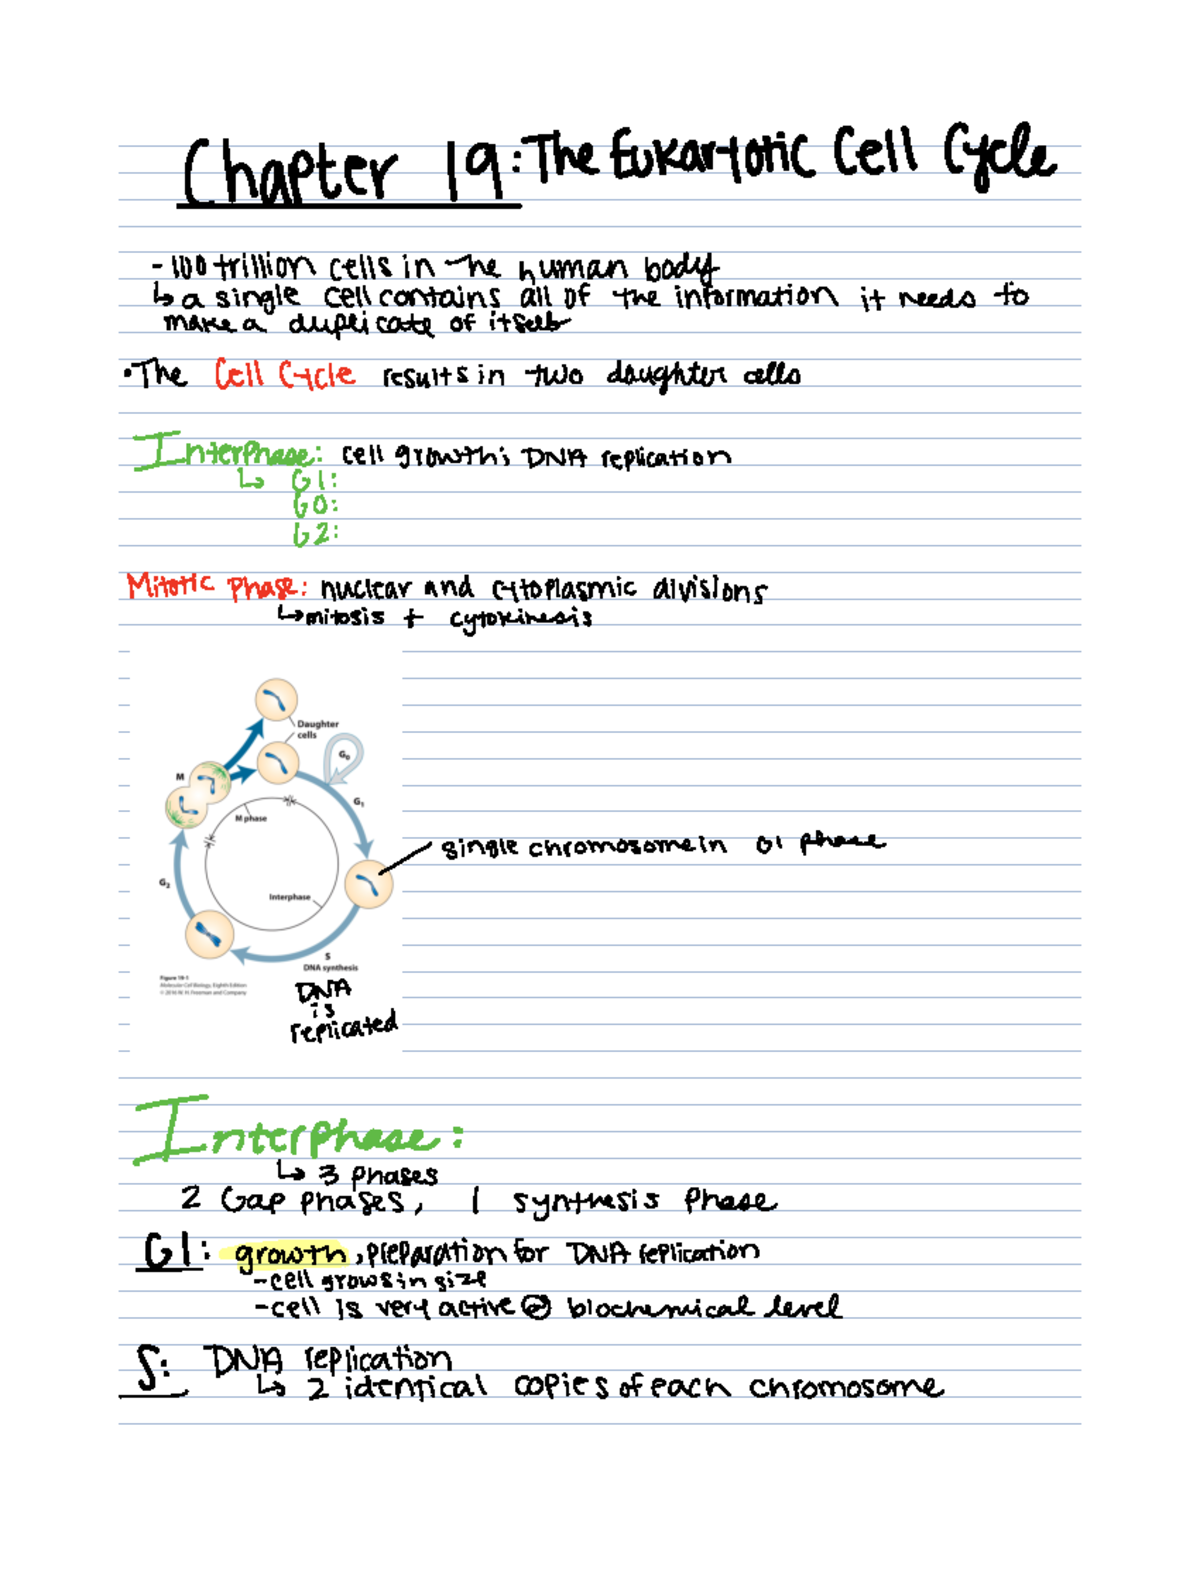 Chapter 19: The Eukaryotic Cell Cycle
- 100 trillion cells in the human body
↳ a single cell contains all of the information it needs to
make a duplicate of itself
• The Cell Cycle results in two daughter cells
Interphase: cell growth; DNA replication
↳ G1:
G0:
G2:
Mitotic Phase: nuclear and cytoplasmic divisions
↳ mitosis + cytokinesis
Daughter
cells
G₀
M
G₁
M phase
single chromosome in G1 phase
G₂
Interphase
S
DNA synthesis
Figure 19-1
Molecular Cell Biology, Eighth Edition
© 2016 W. H. Freeman and Company
DNA
is
replicated
Interphase:
↳ 3 phases
2 Gap phases, 1 synthesis phase
G1: growth, preparation for DNA replication
- cell grows in size
- cell is very active @ biochemical level
S: DNA replication
↳ 2 identical copies of each chromosome